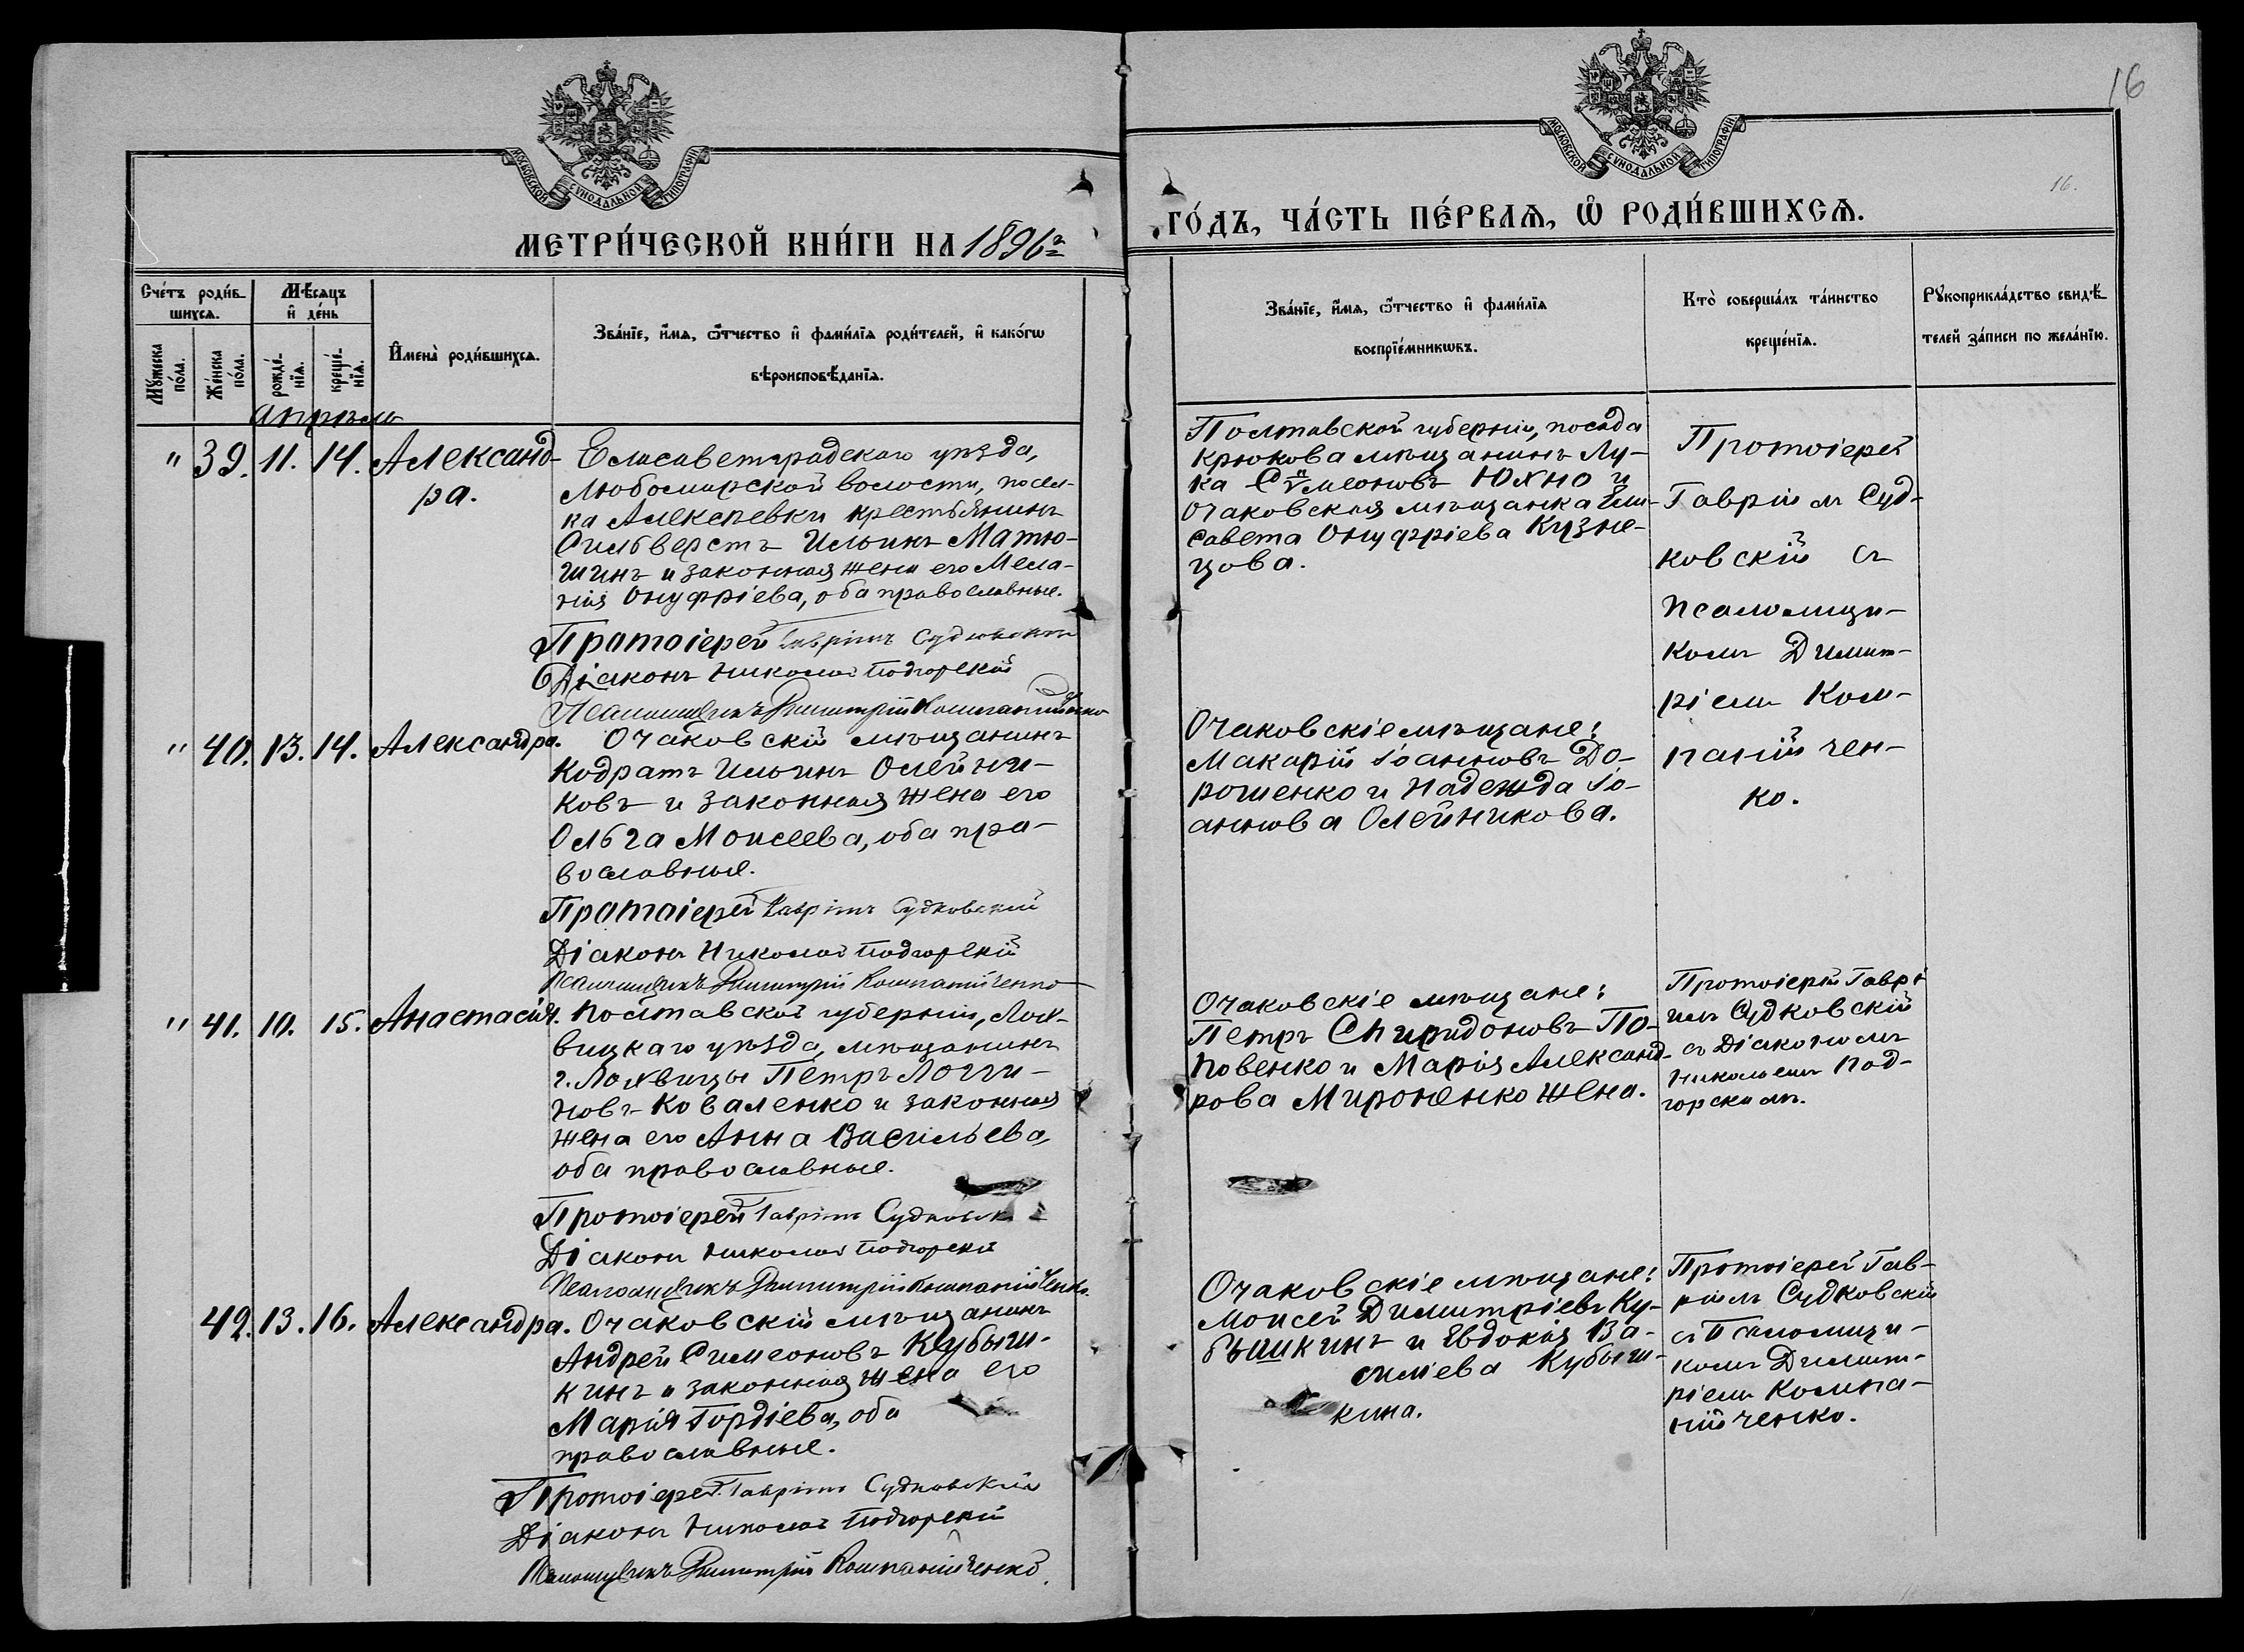 16
16.
МОСКОВСКОЙ СѴНОДАЛЬНОЙ ТИПОГРАФІИ
МОСКОВСКОЙ СѴНОДАЛЬНОЙ ТИПОГРАФІИ
МЕТРИ́ЧЕСКОЙ КНИ́ГИ НА 1896 г.
ГО́ДЪ, ЧА́СТЬ ПЕ́РВАѦ, Ѽ РОДИ́ВШИХСѦ.
Сче́тъ роди́в-
шихсѧ.
Мѣ́сѧцъ
и҆ де́нь
Мꙋ́жеска
по́ла.
Же́нска
по́ла.
рожде́-
нїѧ.
креще́-
нїѧ.
И҆мена̀ роди́вшихсѧ.
Зва́нїе, и҆́мѧ, ѻ҆́тчество и҆ фами́лїѧ роди́телей, и҆ како́гѡ
вѣроисповѣ́данїѧ.
Зва́нїе, и҆́мѧ, ѻ҆́тчество и҆ фами́лїѧ
воспрїе́мникѡвъ.
Кто̀ соверша́лъ та́инство
креще́нїѧ.
Рꙋкоприкла́дство свидѣ́-
телей за́писи по жела́нїю.
Апрѣль
" 39. 11. 14. Александ-
ра.
Елисаветградскаго уѣзда,
Любомирской волости, посел-
ка Алексѣевки крестьянинъ
Сильверстъ Ильинъ Матю-
шинъ и законная жена его Мела-
нія Онуфріева, оба православные.
Протоіерей Гавріилъ Судковскій
Діаконъ Николай Подгорскій
Псаломщикъ Димитрій Компанійченко
Полтавской губерніи, посада
Крюкова мѣщанинъ Лу-
ка Сѵмеоновъ Юхно и
Очаковская мѣщанка Ели-
савета Онуфріева Кузне-
цова.
Протоіерей
Гавріилъ Суд-
ковскій съ
псаломщи-
комъ Димит-
ріемъ Ком-
панійчен-
ко.
" 40. 13. 14. Александра.
Очаковскій мѣщанинъ
Кодратъ Ильинъ Олейни-
ковъ и законная жена его
Ольга Моисеева, оба пра-
вославные.
Протоіерей Гавріилъ Судковскій
Діаконъ Николай Подгорскій
Псаломщикъ Димитрій Компанійченко
Очаковскіе мѣщане:
Макарій Іоанновъ До-
рошенко и Надежда Іо-
аннова Олейникова.
" 41. 10. 15. Анастасія.
Полтавской губерніи, Лох-
вицкаго уѣзда, мѣщанинъ
г. Лохвицы Петръ Логги-
новъ Коваленко и законная
жена его Анна Васильева,
оба православные.
Протоіерей Гавріилъ Судковск
Діаконъ Николай Подгорскій
Псаломщикъ Димитрій Компанійченко
Очаковскіе мѣщане:
Петръ Спиридоновъ По-
повенко и Марія Александ-
рова Мироненко жена.
Протоіерей Гаврі-
илъ Судковскій
съ Діакономъ
Николаемъ Под-
горскимъ.
42. 13. 16. Александра.
Очаковскій мѣщанинъ
Андрей Симеоновъ Кубыш-
кинъ и законная жена его
Марія Гордіева, оба
православные.
Протоіерей Гавріилъ Судковскій
Діаконъ Николай Подгорскій
Псаломщикъ Димитрій Компанійченко
Очаковскіе мѣщане:
Моисей Димитріевъ Ку-
бышкинъ и Евдокія Ва-
силіева Кубыш-
кина.
Протоіерей Гав-
ріилъ Судковскій
съ Псаломщи-
комъ Димит-
ріемъ Компа-
нійченко.